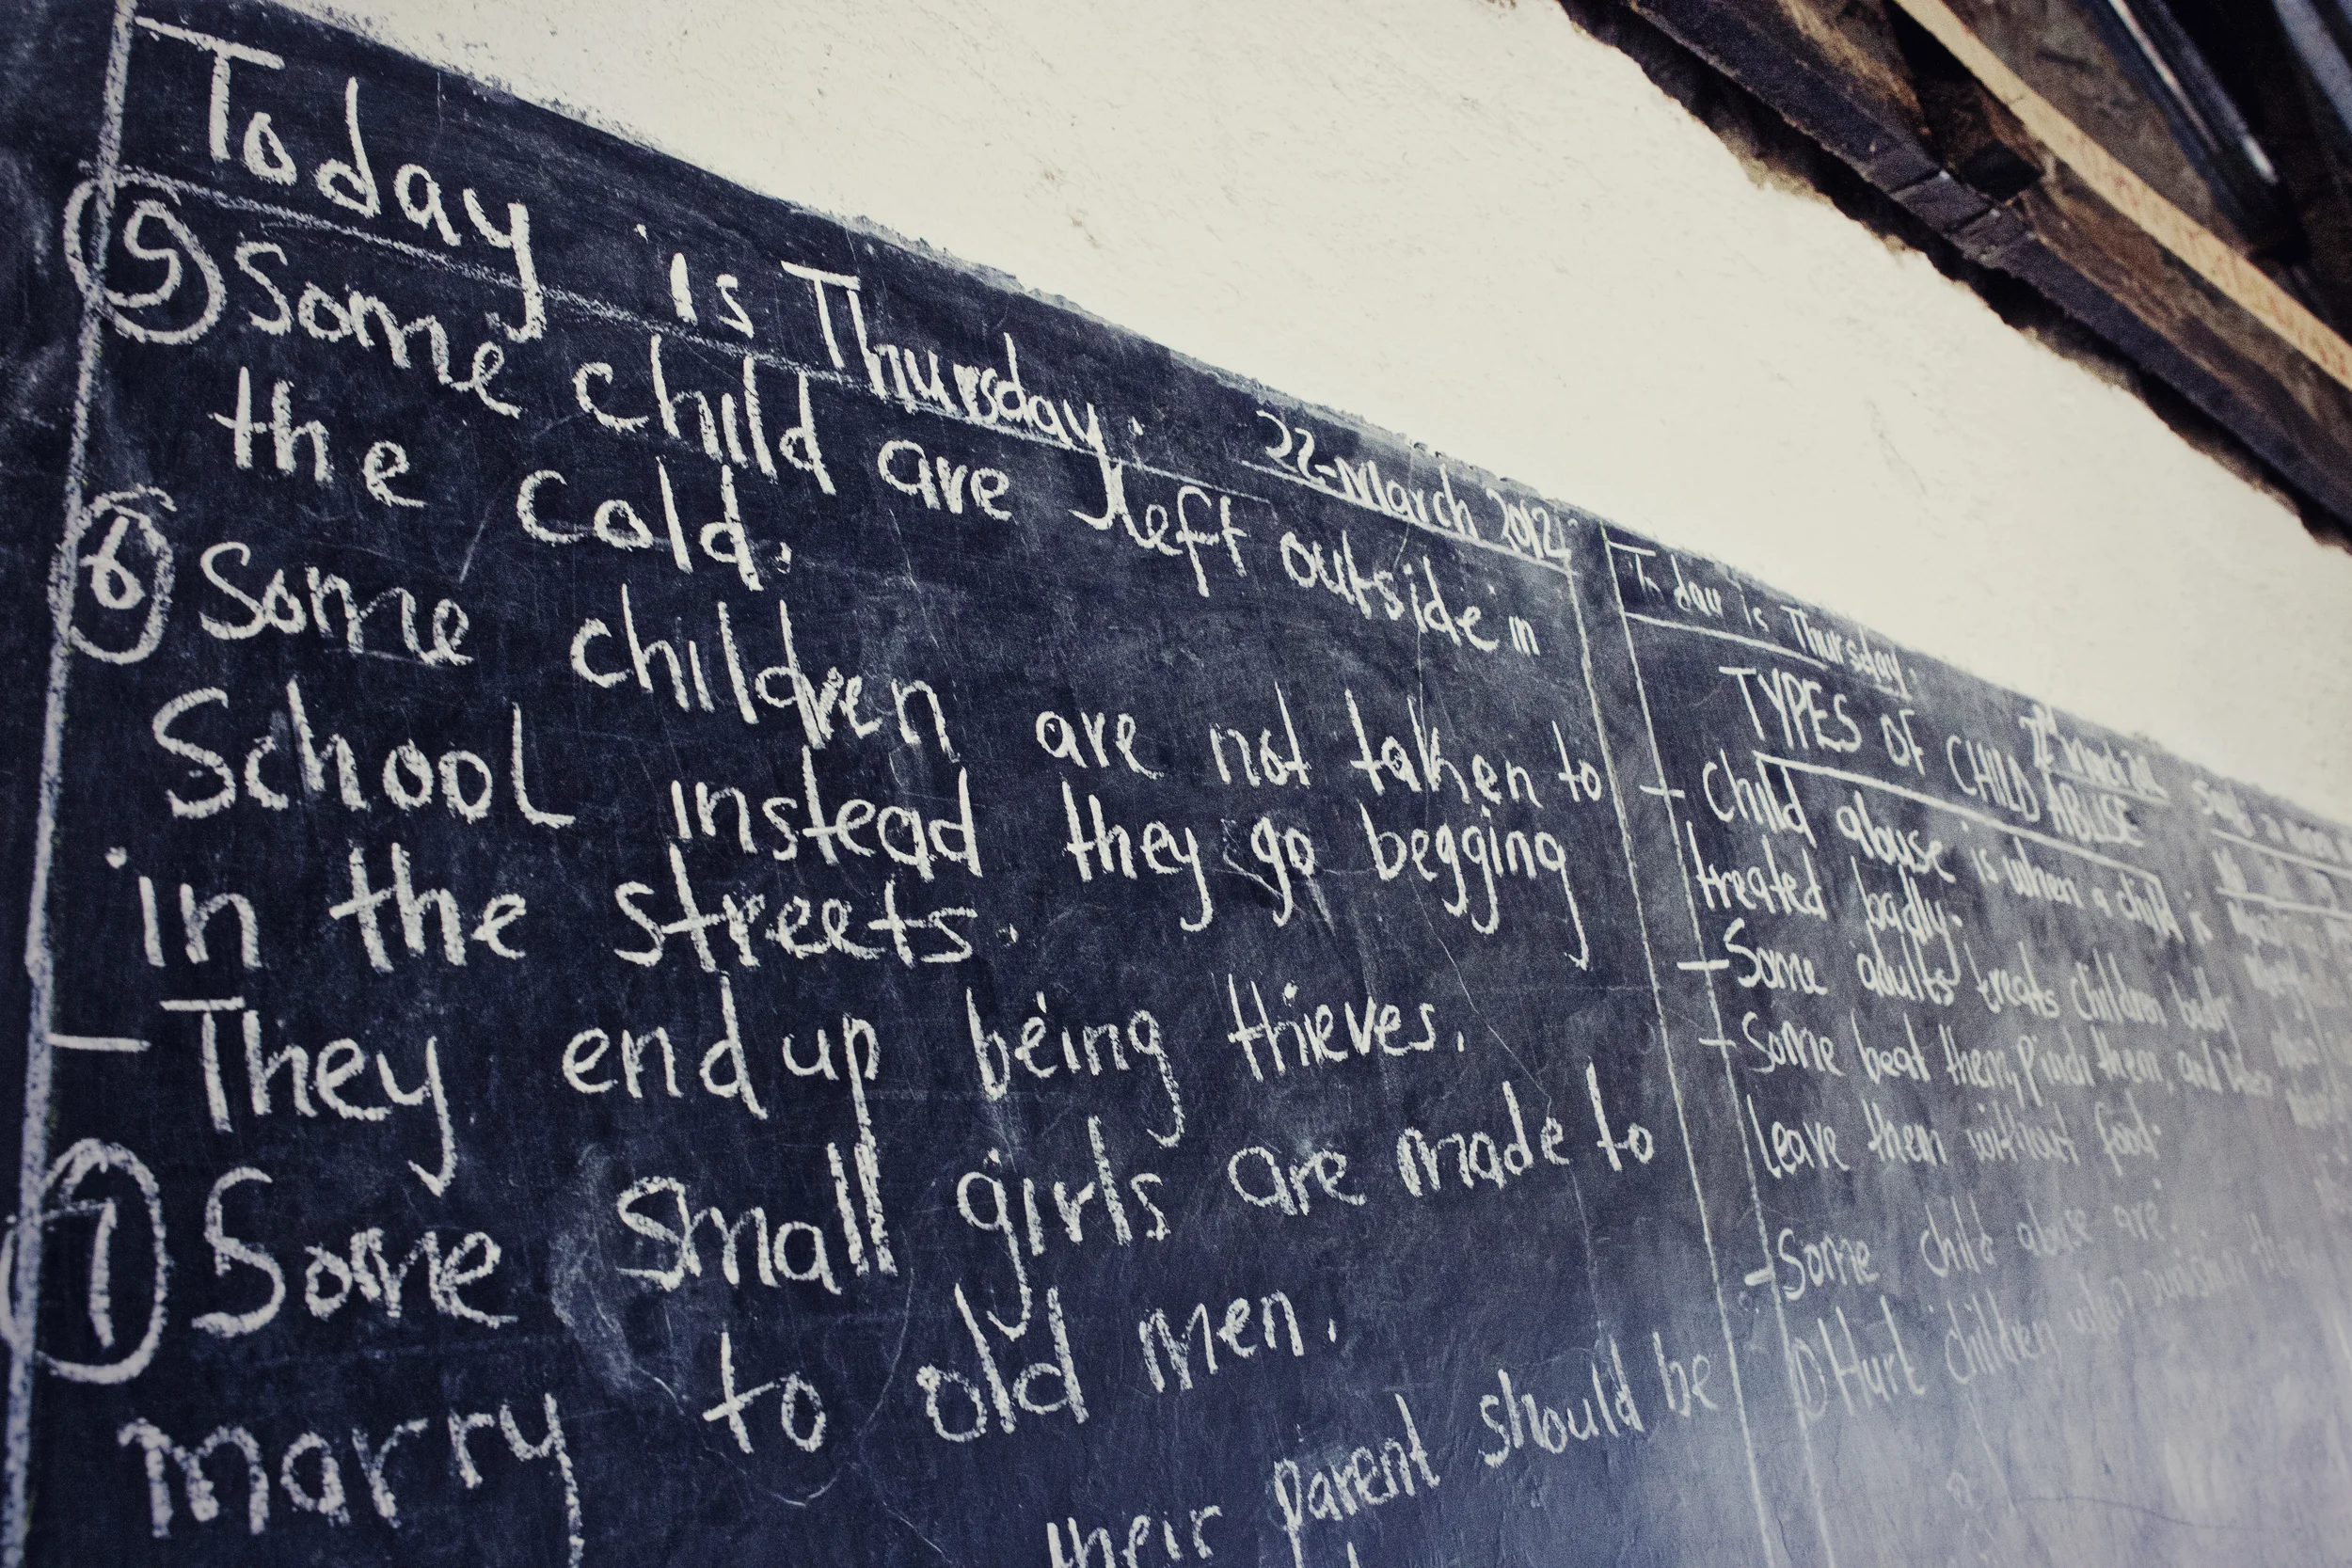 Today is Thursday. 22-March 2012
⑤ Some child are left outside in
the cold.
⑥ Some children are not taken to
School instead they go begging
in the streets.
- They end up being thieves.
⑦ Some small girls are made to
marry to old men.
their parent should be
Today is Thursday.
TYPES OF CHILD ABUSE
- Child abuse is when a child is
treated badly.
- Some adults treats children badly
- Some beat them, Pinch them, and
leave them without food.
- Some child abuse are.
① Hurt children